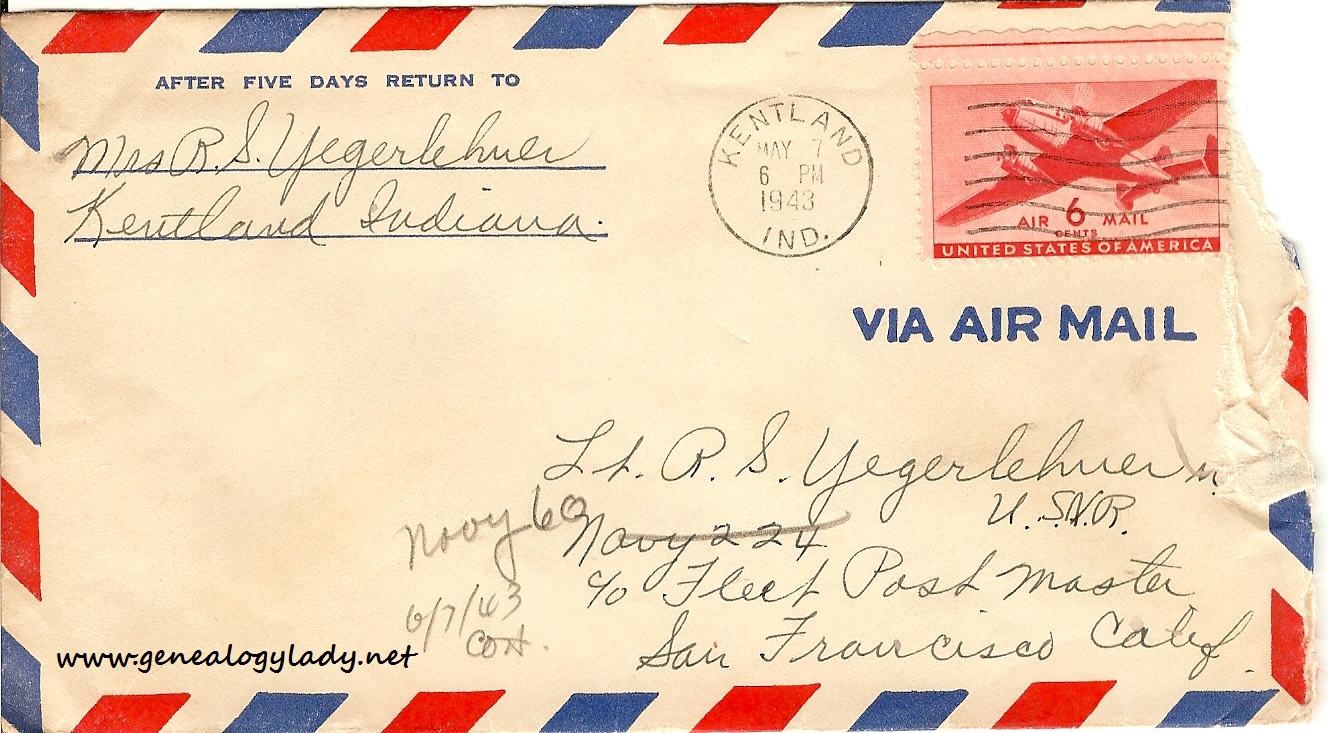 AFTER FIVE DAYS RETURN TO
Mrs R. S. Yegerlehner
Kentland Indiana.
KENTLAND
MAY 7
6 PM
1943
IND.
AIR 6 MAIL
CENTS
UNITED STATES OF AMERICA
VIA AIR MAIL
Lt. R. S. Yegerlehner
U.S.N.R.
Navy 60
Navy 224
c/o Fleet Post Master
San Francisco Calif.
6/7/43
www.genealogylady.net